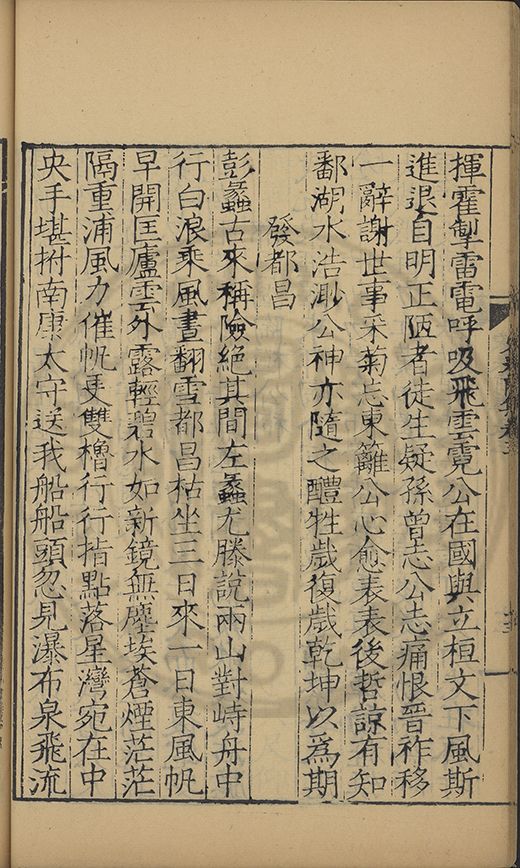 揮霍掣雷電呼吸飛雲霓公在國與立桓文下風斯
進退自明正陋者徒生疑孫曾志公志痛恨晉祚移
一辭謝世事采菊忘東籬公心愈表表後哲諒有知
鄱湖水浩渺公神亦隨之醴牲歲復歲乾坤以爲期
發都昌
彭蠡古來稱險絕其間左蠡尤勝說兩山對峙舟中
行白浪乘風晝翻雪都昌枯坐三日來一日東風帆
早開匡廬雲外露輕碧水如新鏡無塵埃蒼煙茫茫
隔重浦風力催帆更雙櫓行行指點落星灣宛在中
央手堪拊南康太守送我船船頭忽見瀑布泉飛流